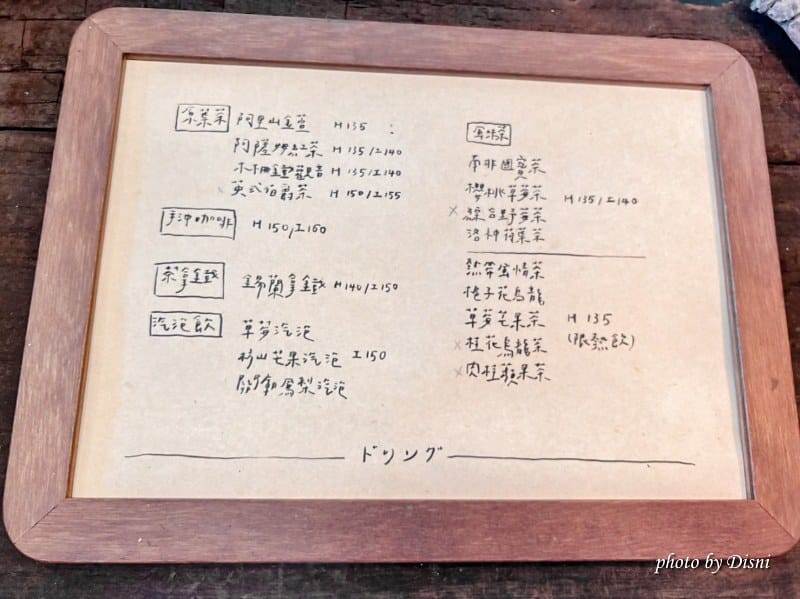 原葉茶 阿里山金萱 H 135
阿薩姆紅茶 H 135/I 140
木柵鐵觀音 H 135/I 140
× 英式伯爵茶 H 150/I 155
手沖咖啡 H 150/I 160
茶拿鐵 錫蘭拿鐵 H 140/I 150
汽泡飲 草莓汽泡
杉山芒果汽泡 I 150
關廟鳳梨汽泡
窨味茶
南非國寶茶
櫻桃草莓茶 H 135/I 140
× 綜合野莓茶
洛神荷葉茶
熱帶風情茶
梔子花烏龍
草莓芒果茶 H 135
× 桂花烏龍茶 (限熱飲)
× 肉桂蘋果茶
ドリング
photo by Disni